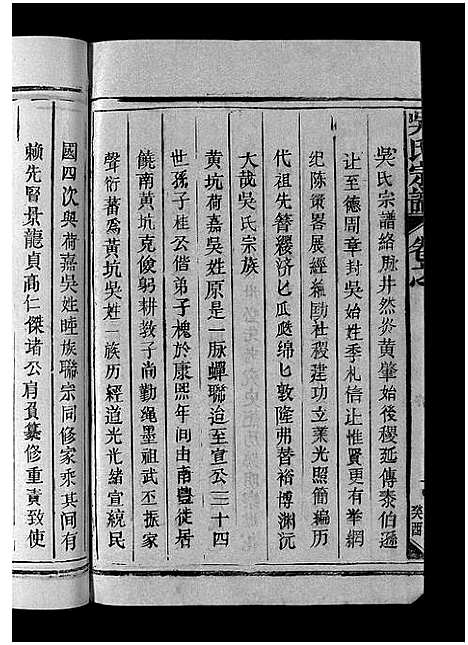 吴氏宗譜
卷之
癸酉
吴氏宗譜絡脉井然炎黄肇始後稷延傳泰伯遜
让至德周章封吴始姓季札信让惟賢更有举網
纪陈策畧展經纶励社稷建功立業光照簡编历
代祖先簪缨济匕瓜瓞绵匕敦隆弗替裕博渊沅
大哉吴氏宗族
黄坑荷嘉吴姓原是一脉蟬聯迨至宣公三十四
世孫子桂公偕弟子槐於康熙年间由南豊徒居
饒南黄坑克俊躬耕教子尚勤绳墨祖武丕振家
聲衍蕃爲黄坑吴姓一族历經道光光緒宣統民
國四次與荷嘉吴姓睦族聯宗同修家乘其间有
赖先賢景龍貞高仁傑堵公肩負纂修重責致使